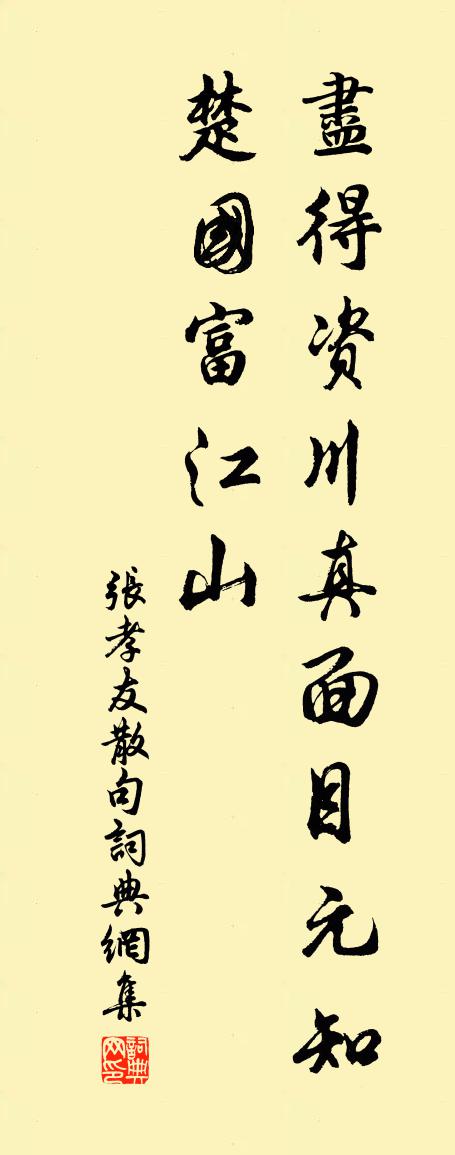 盡得資川真面目元知
楚國富江山
張孝友散句詞典網集
詞典网印